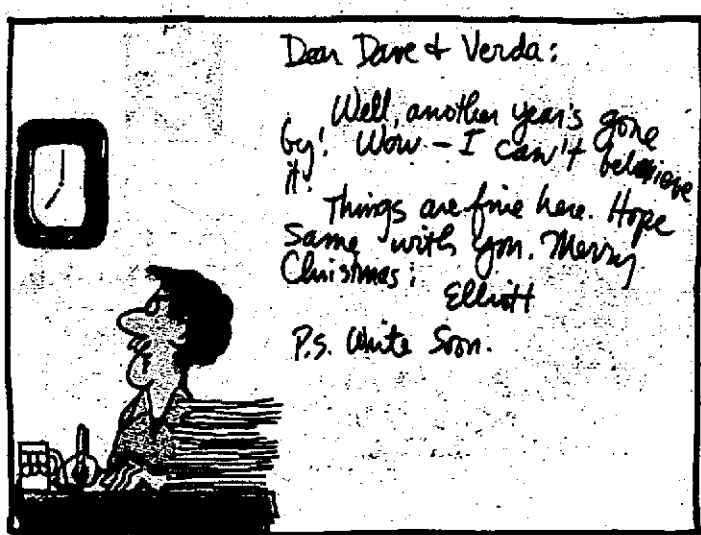 Dear Dave & Verda:
Well, another year's gone
by! Wow - I can't believe
it!
Things are fine here. Hope
Same with you. Merry
Christmas;
Elliott
P.S. Write Soon.